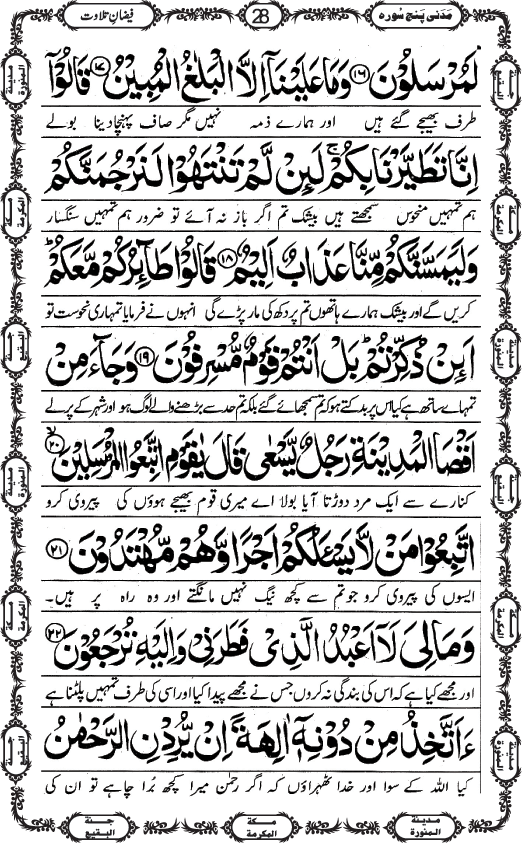 مَدَنی پنج سورہ 28 فیضانِ تلاوت
لَمُرْسَلُوْنَ ﴿۱۶﴾ وَمَا عَلَيْنَآ اِلَّا الْبَلٰغُ الْمُبِيْنُ ﴿۱۷﴾ قَالُوْٓا
طرف بھیجے گئے ہیں اور ہمارے ذمہ نہیں مگر صاف پہنچا دینا بولے
اِنَّا تَطَيَّرْنَا بِكُمْ ۚ لَئِنْ لَّمْ تَنْتَهُوْا لَنَرْجُمَنَّكُمْ
ہم تمہیں منحوس سمجھتے ہیں بیشک تم اگر باز نہ آئے تو ضرور ہم تمہیں سنگسار
وَلَيَمَسَّنَّكُمْ مِّنَّا عَذَابٌ اَلِيْمٌ ﴿۱۸﴾ قَالُوْا طَآئِرُكُمْ مَّعَكُمْ ؕ
کریں گے اور بیشک ہمارے ہاتھوں تم پر دکھ کی مار پڑے گی انہوں نے فرمایا تمہاری نحوست تو
اَئِنْ ذُكِّرْتُمْ ؕ بَلْ اَنْتُمْ قَوْمٌ مُّسْرِفُوْنَ ﴿۱۹﴾ وَجَآءَ مِنْ
تمہارے ساتھ ہے کیا اس پر بدکتے ہو کہ تم سمجھائے گئے بلکہ تم حد سے بڑھنے والے لوگ ہو اور شہر کے پرلے
اَقْصَا الْمَدِيْنَةِ رَجُلٌ يَّسْعٰى قَالَ يٰقَوْمِ اتَّبِعُوا الْمُرْسَلِيْنَ ﴿۲۰﴾
کنارے سے ایک مرد دوڑتا آیا بولا اے میری قوم بھیجے ہوؤں کی پیروی کرو
اتَّبِعُوْا مَنْ لَّا يَسْـَٔلُكُمْ اَجْرًا وَّهُمْ مُّهْتَدُوْنَ ﴿۲۱﴾
ایسوں کی پیروی کرو جو تم سے کچھ نیگ نہیں مانگتے اور وہ راہ پر ہیں۔
وَمَا لِىَ لَآ اَعْبُدُ الَّذِىْ فَطَرَنِىْ وَاِلَيْهِ تُرْجَعُوْنَ ﴿۲۲﴾
اور مجھے کیا ہے کہ اس کی بندگی نہ کروں جس نے مجھے پیدا کیا اور اسی کی طرف تمہیں پلٹنا ہے
ءَاَتَّخِذُ مِنْ دُوْنِهٖٓ اٰلِهَةً اِنْ يُّرِدْنِ الرَّحْمٰنُ
کیا اللہ کے سوا اور خدا ٹھہراؤں کہ اگر رحمٰن میرا کچھ بُرا چاہے تو ان کی
مدینة المنورة
مكة المكرمة
جنة البقيع
مدینة المنورة
مكة المكرمة
جنة البقيع
مكة المكرمة
مدینة المنورة
جنة البقيع
مكة المكرمة
مدینة المنورة
جنة البقيع
مدینة المنورة
مكة المكرمة
جنة البقيع